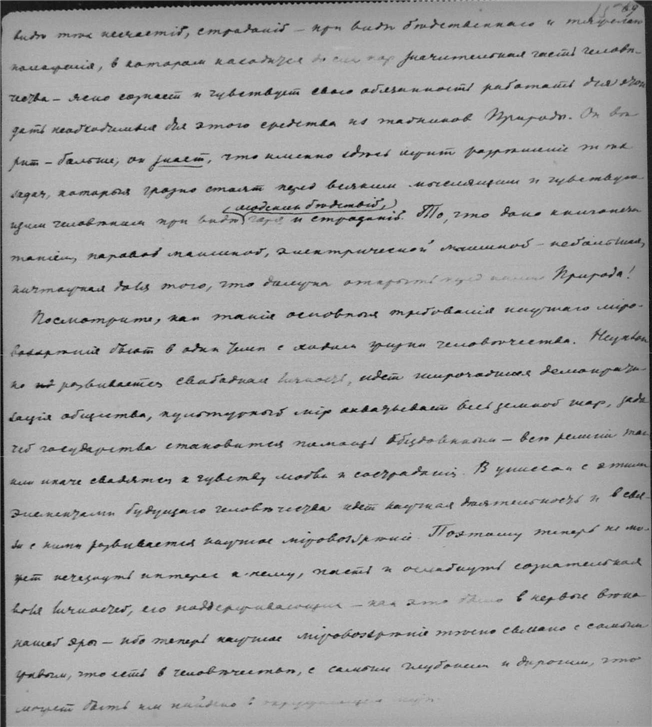 виде тех несчастий, страданій – при виде бедственнаго и тяжелаго
положенія, в котором находится до сих пор значительная часть челове-
чества – ясно сознает и чувствует свою обязанность работать для
дать необходимыя для этого средства из тайников Природы. Он ве-
рит – больше, он знает, что именно здесь лежит разрешеніе тех
задач, которыя грозно стоят перед всяким мыслящим и чувствую-
(людских бедствій,)
щим человеком при виде горя и страданій. То, что дано книгопеча-
танием, паровой машиной, электрической машиной – небольшая,
ничтожная доля того, что должна открыть перед нами Природа!
Посмотрите, как такія основныя требованія научнаго міро-
воззренія бьют в один темп с ходом жизни человечества. Неуклон-
но развивается свободная личность, идет широчайшая демократи-
зація общества, культурный мір охватывает весь земной шар, зада-
чей государства становится помощь обездоленным – все религіи так
или иначе сводятся к чувству любви и состраданія. В унисон с этими
элементами будущаго человечества идет научная деятельность и в свя-
зи с ними развивается научное міровоззреніе. Поэтому теперь не мо-
жет исчезнуть интерес к нему, пасть и ослабнуть сознательная
воля личностей, его поддерживающих – как это было в первые века
нашей эры – ибо теперь научное міровоззреніе тесно связано с самым
живым, что есть в человечестве, с самым глубоким и дорогим, что
может быть им найдено в окружающем мире.